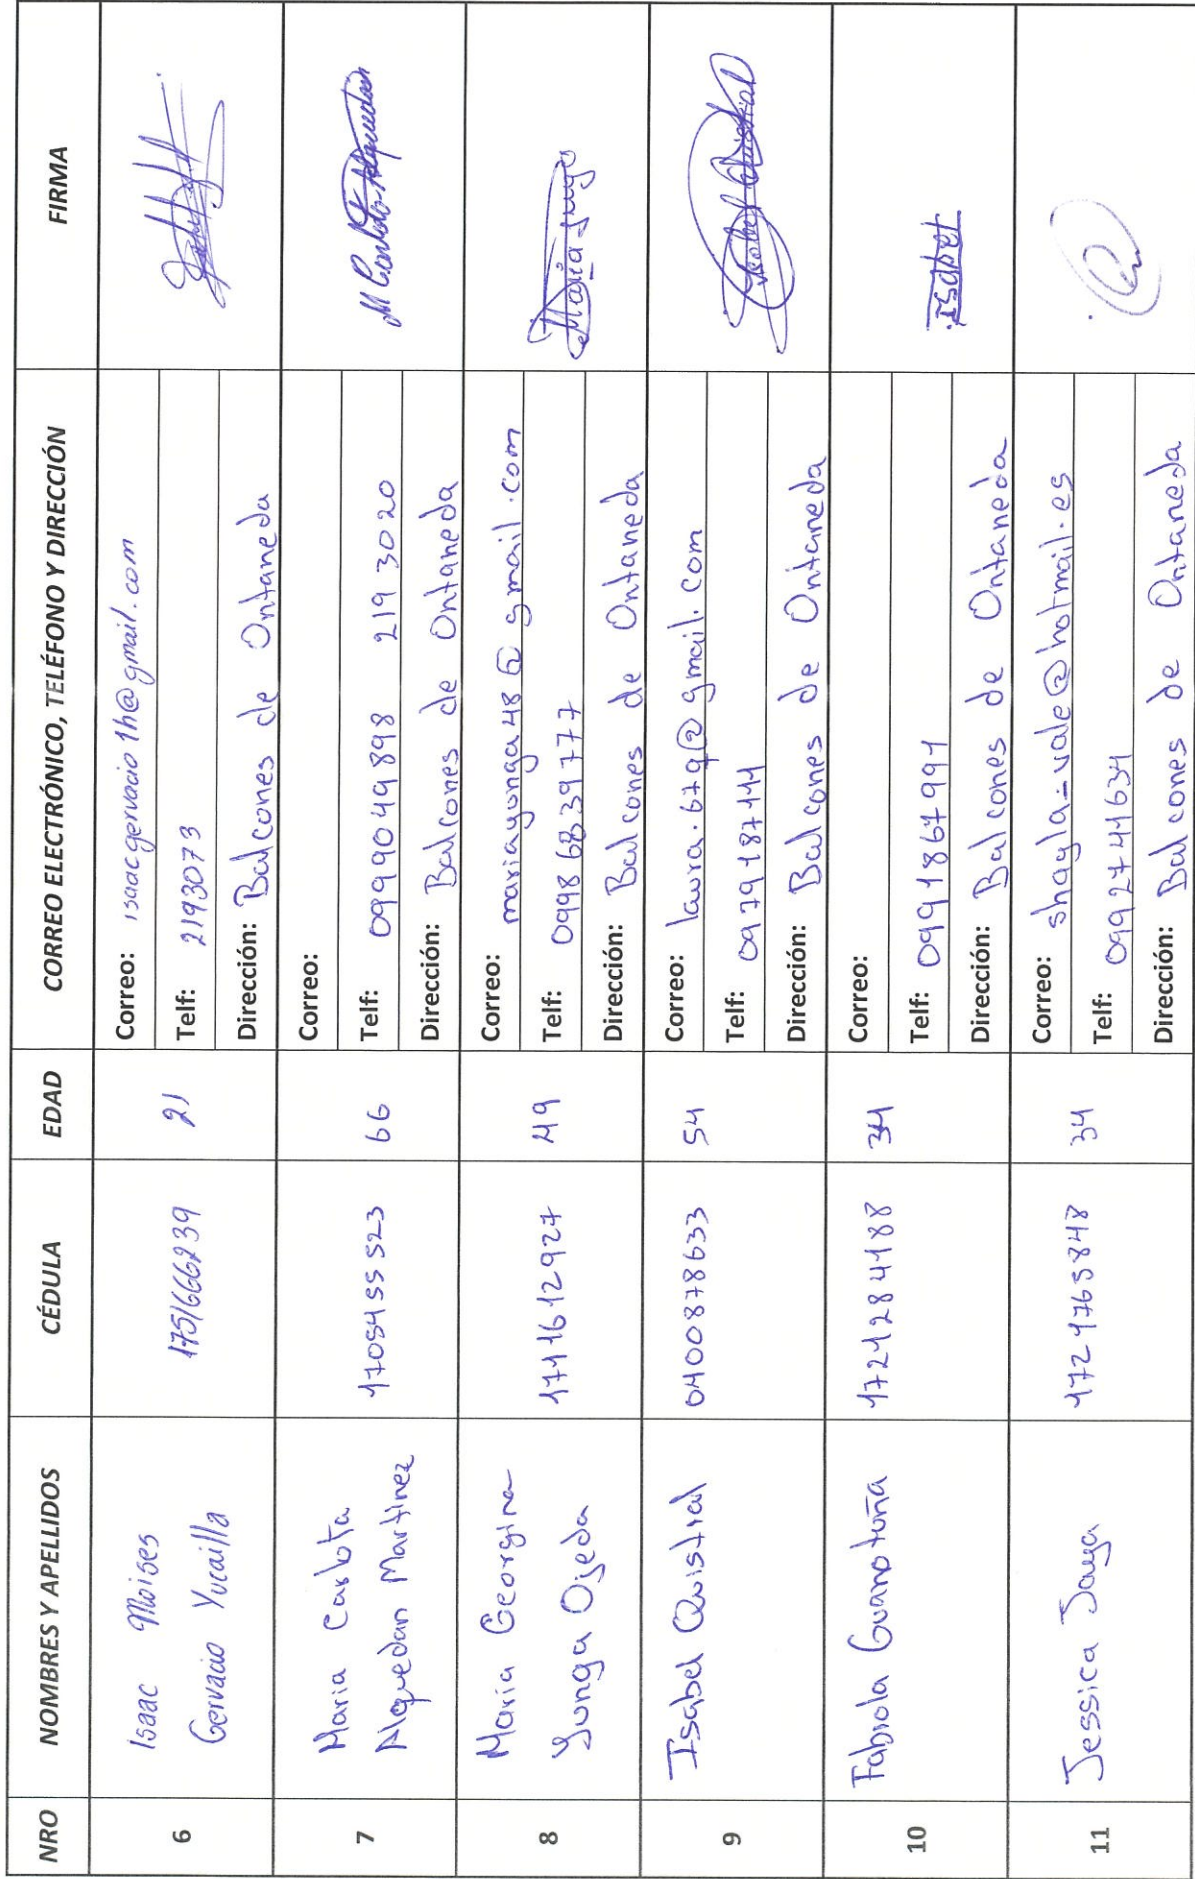 NRO NOMBRES Y APELLIDOS CÉDULA EDAD CORREO ELECTRÓNICO, TELÉFONO Y DIRECCIÓN FIRMA
6
Isaac Moises
Gervacio Yucailla
1751666239
21
Correo: isaacgervacio1h@gmail.com
Telf: 2193073
Dirección: Balcones de Ontaneda
7
Maria Carlota
Alquedan Martinez
1705455523
66
Correo:
Telf: 0999049898 219 3020
Dirección: Balcones de Ontaneda
M Carlota Alquedan
8
Maria Georgina
Yunga Ojeda
1711612927
49
Correo: mariayunga48@gmail.com
Telf: 0998 6839777
Dirección: Balcones de Ontaneda
Maria Yunga
9
Isabel Quistial
0400878633
54
Correo: laura.679@gmail.com
Telf: 0979187111
Dirección: Balcones de Ontaneda
Isabel Quistial
10
Fabiola Guanotuña
1721284188
34
Correo:
Telf: 0991867991
Dirección: Balcones de Ontaneda
11
Jessica Jaya
1721765848
34
Correo: shayla-vale@hotmail.es
Telf: 0992741634
Dirección: Balcones de Ontaneda